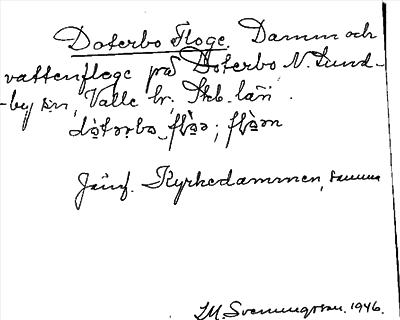 Doterbo Floge. Damm och
vattenflege på Doterbo N. Lund-
-by sn, Valle hr, Skb. län.
dòtərbo flɔ̀ɔ ; flɔ̀ɔn
Jämf. Kyrkedammen, samma
I.M. Svenningsson. 1946.